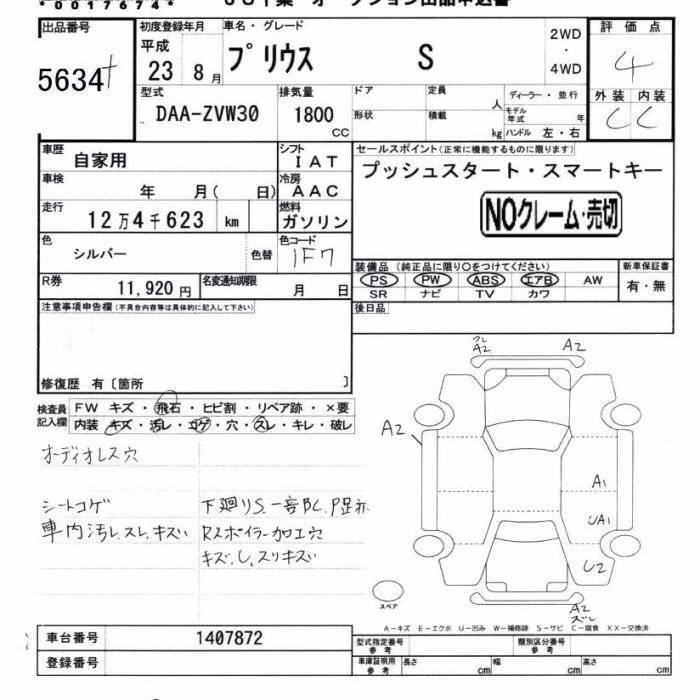 *0017674*
出品番号
5634
初度登録年月
平成
23 8月
車名・グレード
プリウス S
2WD
・
4WD
評価点
4
外装 内装
C C
型式
DAA-ZVW30
排気量
1800
CC
ドア
定員
人
形状
積載
kg
ディーラー・並行
モデル年式
年
ハンドル 左・右
車歴
自家用
シフト
IAT
車検
年 月( 日)
冷房
AAC
走行
12万4千623 km
燃料
ガソリン
色
シルバー
色替
色コード
1F7
R券
11,920円
名変通知期限
月 日
セールスポイント(正常に機能するものに限ります)
プッシュスタート・スマートキー
NOクレーム・売切
装備品 (純正品に限り○をつけてください)
新車保証書
PS PW ABS エアB AW
SR ナビ TV カワ
有・無
後日品
注意事項申告欄(不具合内容等は具体的に記入して下さい)
修復歴 有〔箇所 〕
検査員記入欄
FW キズ・飛石・ヒビ割・リペア跡・×要
内装・キズ・汚レ・コゲ・穴・スレ・キレ・破レ
オーディオレス穴
シートコゲ
車内汚レ.スレ.キズ
下廻りS.
Rスポイラー加工穴
キズ.U.スリキズ
A2
A2
A2
A1
UA1
U2
A2
ズレ
スペア
A-キズ E-エクボ U-凹み W-補修跡 S-サビ C-腐食 XX-交換済
車台番号
1407872
登録番号
型式指定番号
参考
類別区分番号
参考
車庫証明用
参考
長さ
cm
幅
cm
高さ
cm